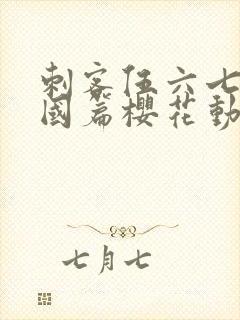 刺客伍六七
國篇櫻花動
七月七